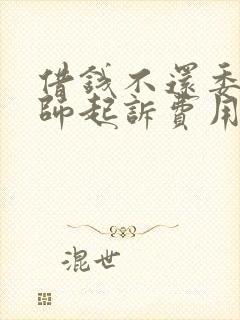 借錢不還委
師起訴費用
混世